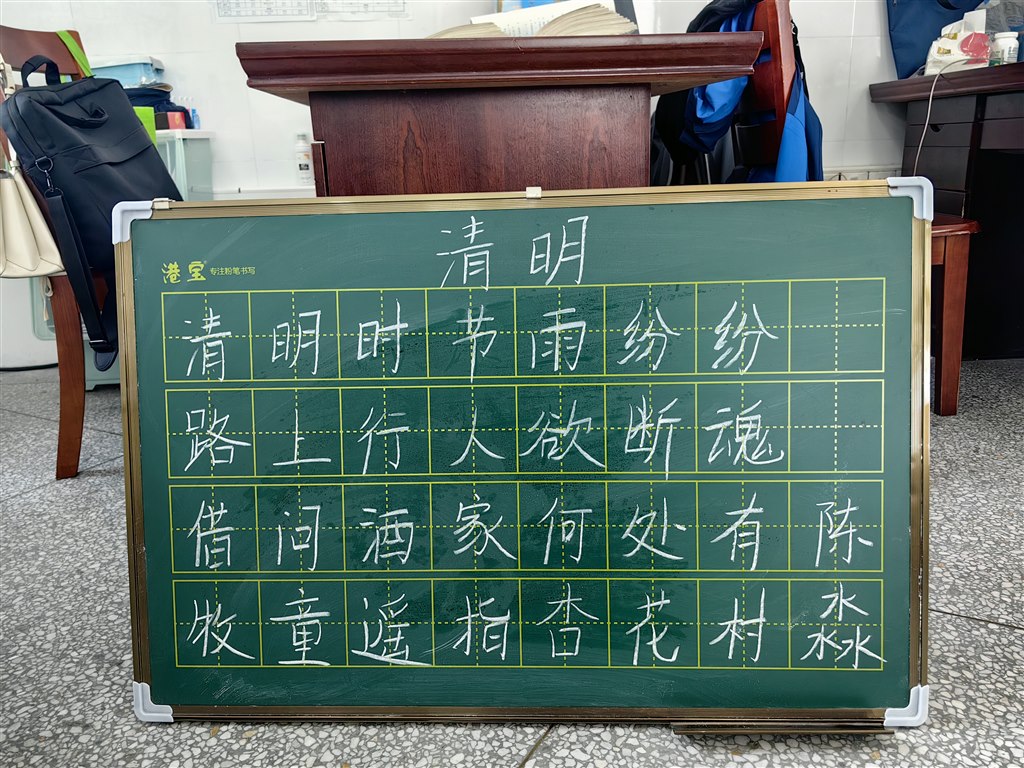 清明
港宝 专注粉笔书写
清明时节雨纷纷
路上行人欲断魂
借问酒家何处有 陈
牧童遥指杏花村 淼